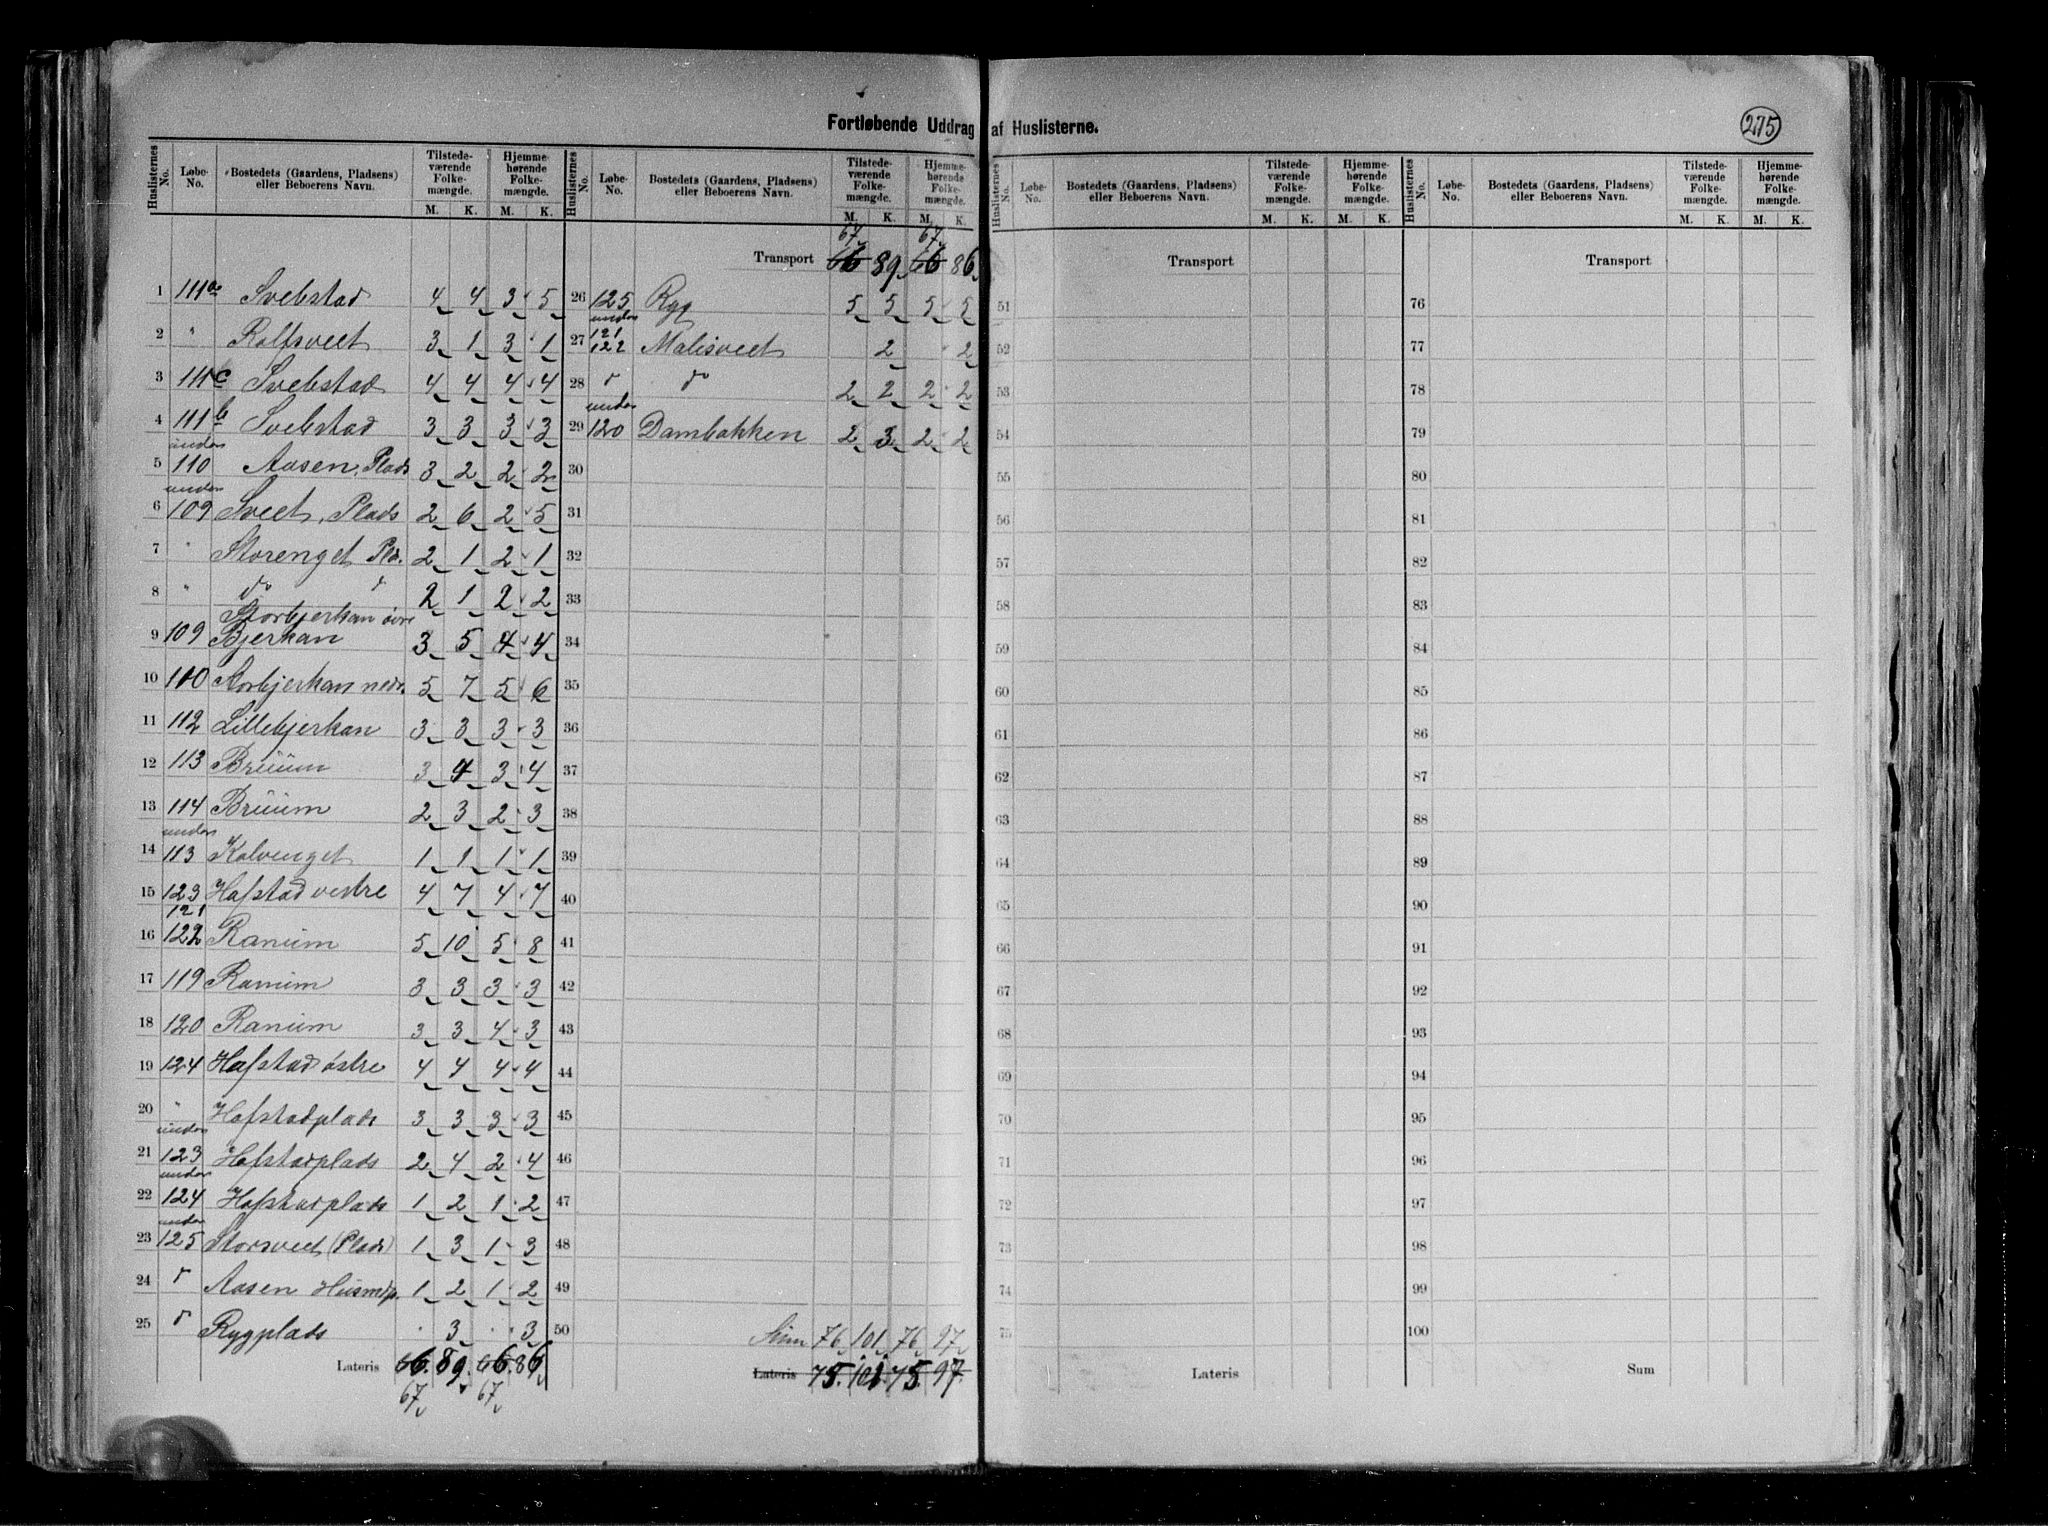 Fortløbende Uddrag af Huslisterne.
275
Huslisternes No. Løbe-No. Bostedets (Gaardens, Pladsens) eller Beboerens Navn. Tilstedeværende Folkemængde. M. K. Hjemmehørende Folkemængde. M. K.
1 111a Svebstad 4 4 3 5
2 " Rolfsveet 3 1 3 1
3 111c Svebstad 4 4 4 4
4 111b Svebstad 3 3 3 3
5 under 110 Aasen, Plads 3 2 2 2
6 under 109 Sveet, Plads 2 6 2 5
7 " Storenget Pla. 2 1 2 1
8 " do d 2 1 2 2
Storbjerkan övre
9 109 Bjerkan 3 5 4 4
10 110 Storbjerkan nedr. 5 7 5 6
11 112 Lillebjerkan 3 3 3 3
12 113 Brüüm 3 4 3 4
13 114 Brüüm 2 3 2 3
14 under 113 Kalvenget 1 1 1 1
15 123 Hafstad vestre 4 7 4 7
16 121 122 Ranüm 5 10 5 8
17 119 Ranüm 3 3 3 3
18 120 Ranüm 3 3 4 3
19 124 Hafstad östre 4 4 4 4
20 " Hafstadplads 3 3 3 3
21 under 123 Hafstadplads 2 4 2 4
22 under 124 Hafstadplads 1 2 1 2
23 under 125 Storsveet (Plads) 1 3 1 3
24 d Aasen Husmdp. 1 2 1 2
25 d Rygplads . 3 . 3
Lateris 66. 89. 66. 86
67 67
Huslisternes No. Løbe-No. Bostedets (Gaardens, Pladsens) eller Beboerens Navn. Tilstedeværende Folkemængde. M. K. Hjemmehørende Folkemængde. M. K.
67 67
Transport 66 89 66 86
26 125 Ryg 5 5 5 5
27 under 121 122 Malisveet 2 2
28 d do 2 2 2 2
29 under 120 Dambakken 2 3 2 2
30
31
32
33
34
35
36
37
38
39
40
41
42
43
44
45
46
47
48
49
50
Sum 76 101 76 97
Lateris 75. 101. 75. 97.
Huslisternes No. Løbe-No. Bostedets (Gaardens, Pladsens) eller Beboerens Navn. Tilstedeværende Folkemængde. M. K. Hjemmehørende Folkemængde. M. K.
Transport
51
52
53
54
55
56
57
58
59
60
61
62
63
64
65
66
67
68
69
70
71
72
73
74
75
Lateris
Huslisternes No. Løbe-No. Bostedets (Gaardens, Pladsens) eller Beboerens Navn. Tilstedeværende Folkemængde. M. K. Hjemmehørende Folkemængde. M. K.
Transport
76
77
78
79
80
81
82
83
84
85
86
87
88
89
90
91
92
93
94
95
96
97
98
99
100
Sum